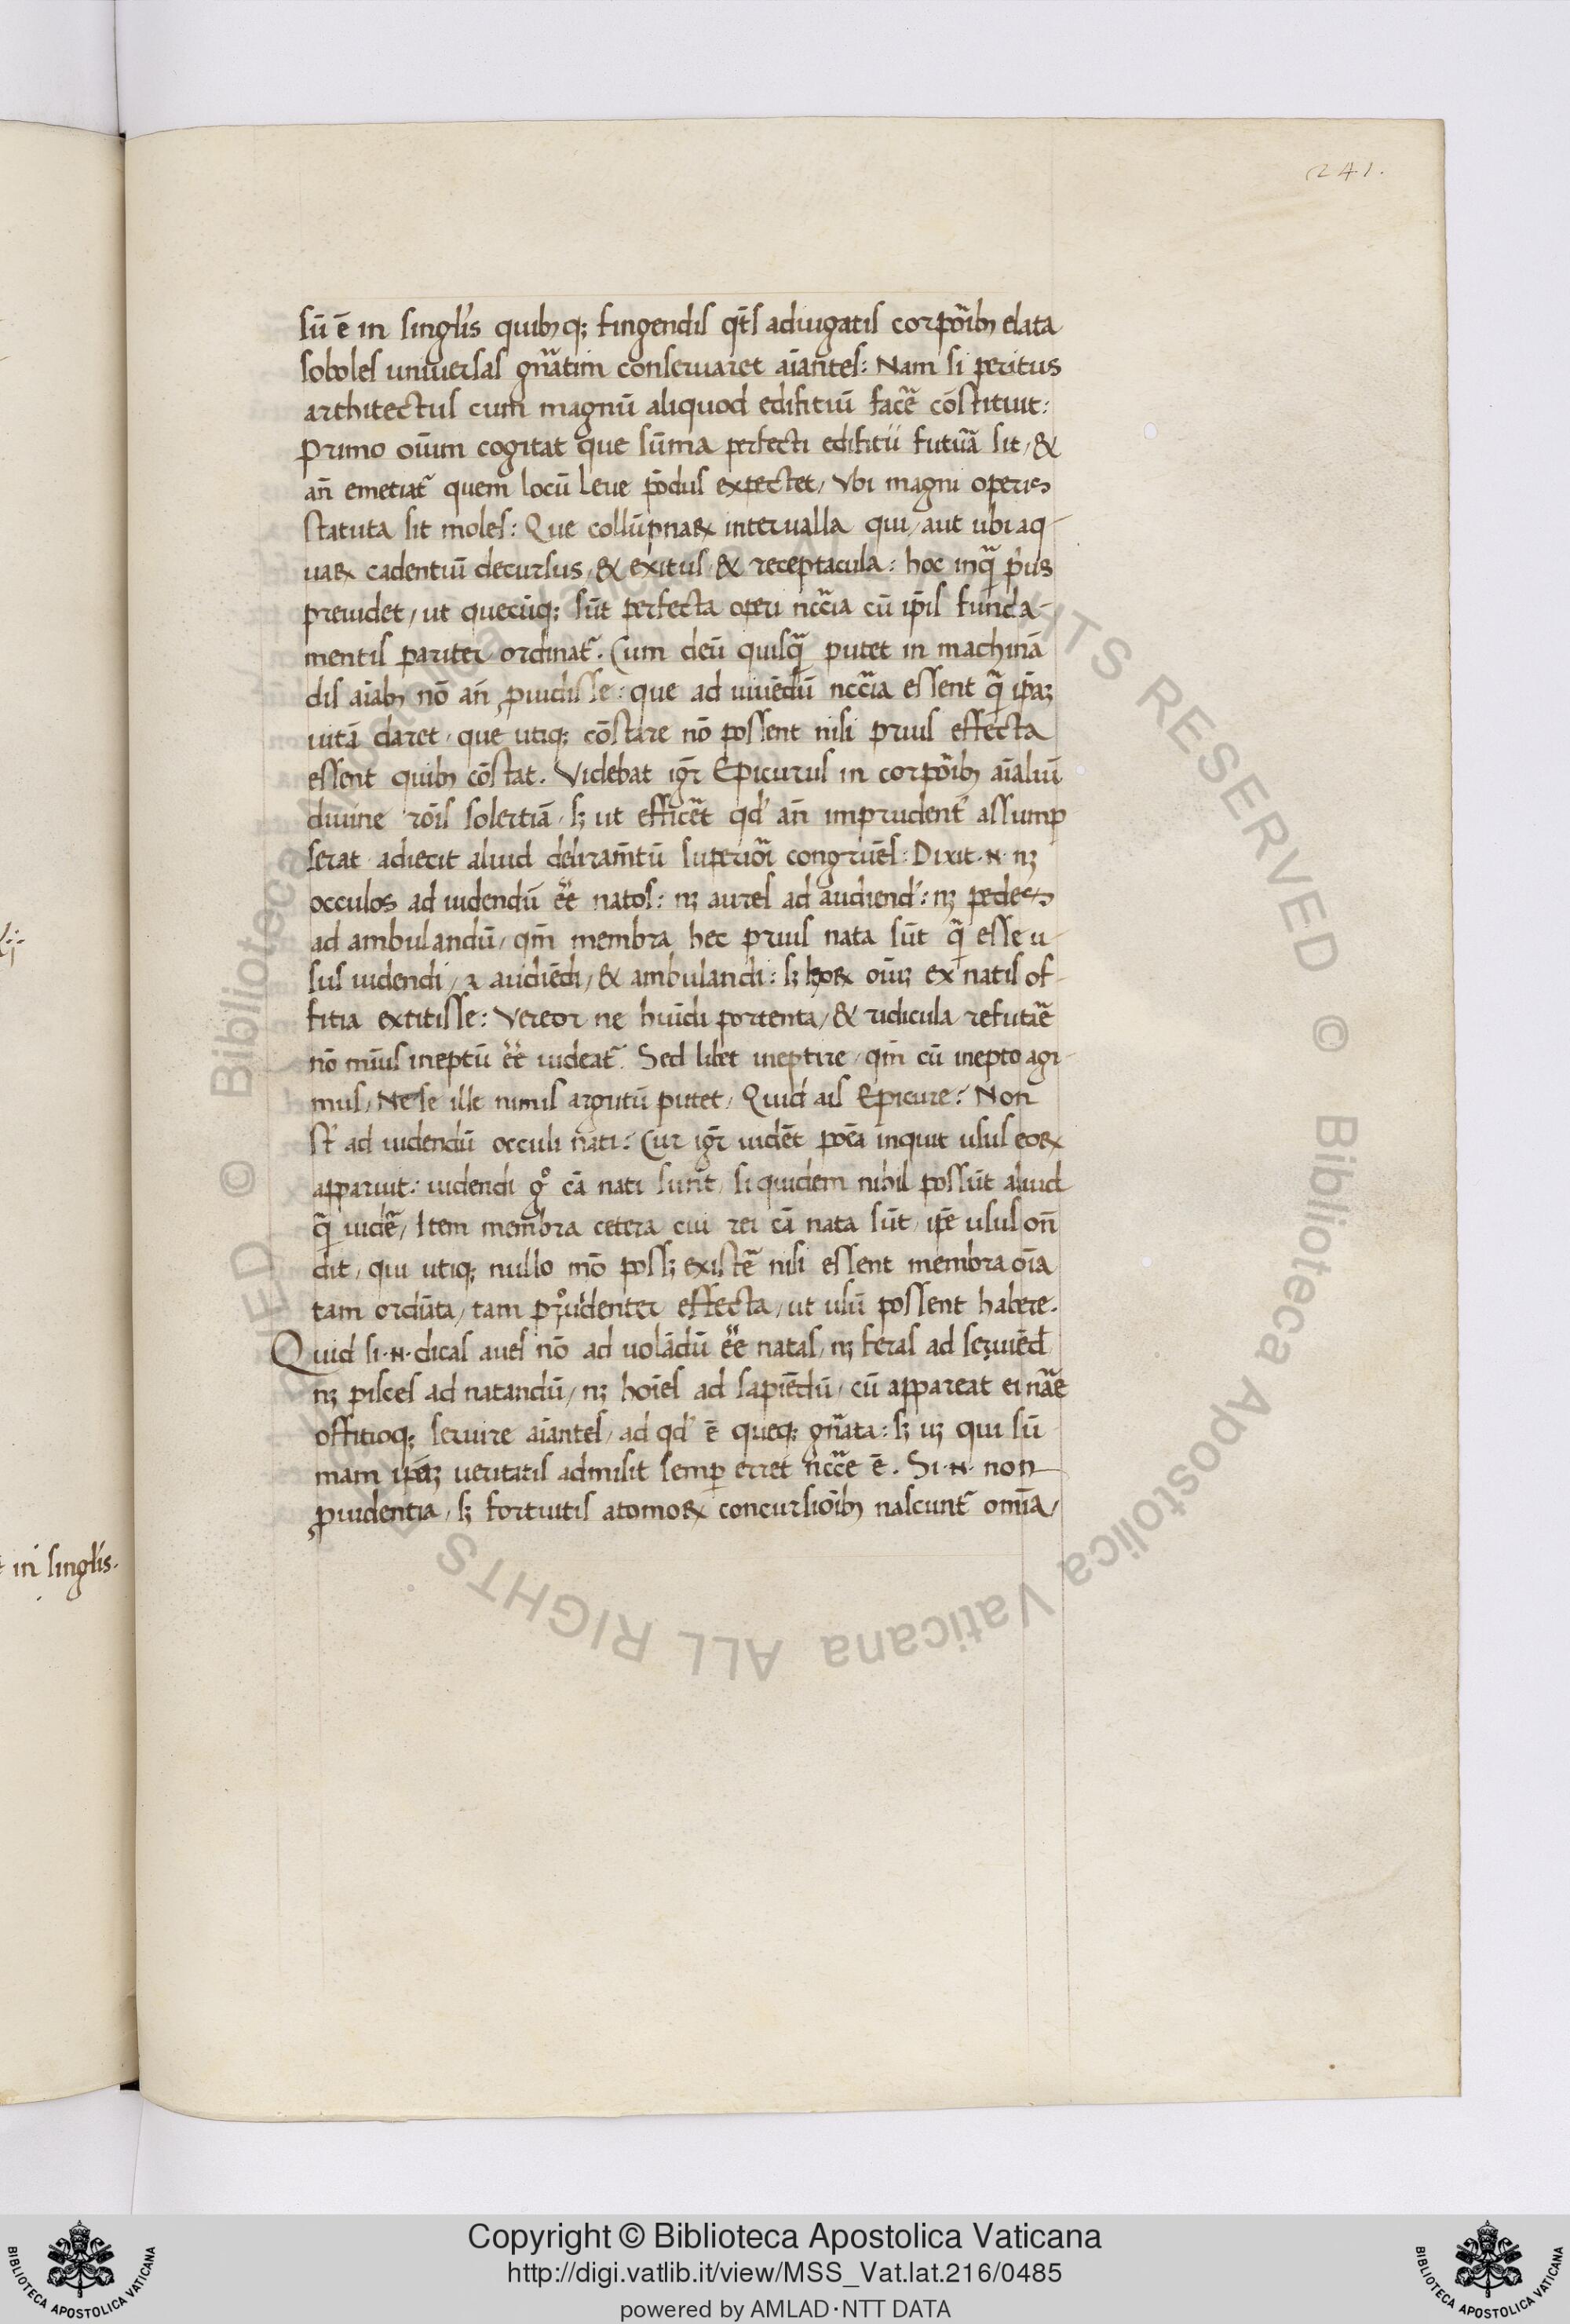 241.
sū ē in singl'is quibꝫ qꝫ fingendis qt̄s adiugatis corpōribꝫ elata
soboles universas gn̄atim conservaret aīantes: Nam si peritus
architectus cum magnū aliquod edifitiū facē cōstituit:
Primo oīum cogitat que sūma perfecti edifitii futūa sit, &
añ emetiat̄ quem locū leve pōdus expectet, Vbi magni operis
statuta sit moles: Que collūpnaꝝ intervalla qui, aut ubi aq-
uaꝝ cadentiū decursus, & exitus & receptacula: hoc inq̄ p'us
previdet, ut quecūqꝫ sūt perfecta operi nccīa cū ip̄is funda-
mentis pariter ordinat̄. Cum deū quisq̄ putet in machinā
dis aīabꝫ nō añ ꝓvidisse: que ad vivēdū nccīa essent q̄ ip̄aꝫ
vitā daret, que utiqꝫ cōstare nō possent nisi prius effecta
essent quibꝫ cōstat. Videbat igr̄ Epicurus in corpōribꝫ aīaliū
divine rōis solertiā, sꝫ ut efficēt qd' añ imprudent' assump
serat adiecit aliud deliram̄tū superiōi congruēs: Dixit .n. nꝫ
occulos ad videndū ēē natos: nꝫ aures ad audiend': nꝫ pedes
ad ambulandū, qm̄ membra hec prius nata sūt q̄ esse u-
sus videndi, ⁊ audiēdi, & ambulandi: sꝫ hoꝝ oīuꝫ ex natis of-
fitia extitisse: Vereor ne huīdi portenta, & ridicula refutāe
nō mīus ineptū ēē videat̄. Sed libet ineptire, qm̄ cū inepto agi-
mus, Ne se ille nimis argutū putet, Quid ais Epicure? Non
st̄ ad videndū occuli nati? Cur igr̄ vidēt poēa inquit usus eoꝝ
apparuit: videndi gͦ cā nati sunt, si quidem nihil possūt aliud
q̄ vidē, Item membra cetera cui rei cā nata sūt, ip̄e usus on̄
dit, qui utiqꝫ nullo mō possꝫ existē nisi essent membra oīa
tam ordīata, tam prͦvidenter effecta, ut usū possent habere.
Quid si .n. dicas aves nō ad volādū ēē natas, nꝫ feras ad serviēd
nꝫ pisces ad natandū, nꝫ hoīes ad sapiēdū, cū appareat ei nāe
offitioqꝫ servire aīantes, ad qd' ē queqꝫ gn̄ata: sꝫ uꝫ qui sū
mam ip̄aꝫ veritatis admisit semp̄ erret nccē ē. Si .n. non
ꝓvidentia, sꝫ fortuitis atomoꝝ concursiōibꝫ nascunt̄ omīa,
in singl'is.
Copyright © Biblioteca Apostolica Vaticana
http://digi.vatlib.it/view/MSS_Vat.lat.216/0485
powered by AMLAD·NTT DATA
BIBLIOTECA APOSTOLICA VATICANA
BIBLIOTECA APOSTOLICA VATICANA
© Biblioteca Apostolica Vaticana ALL RIGHTS RESERVED
© Biblioteca Apostolica Vaticana ALL RIGHTS RESERVED